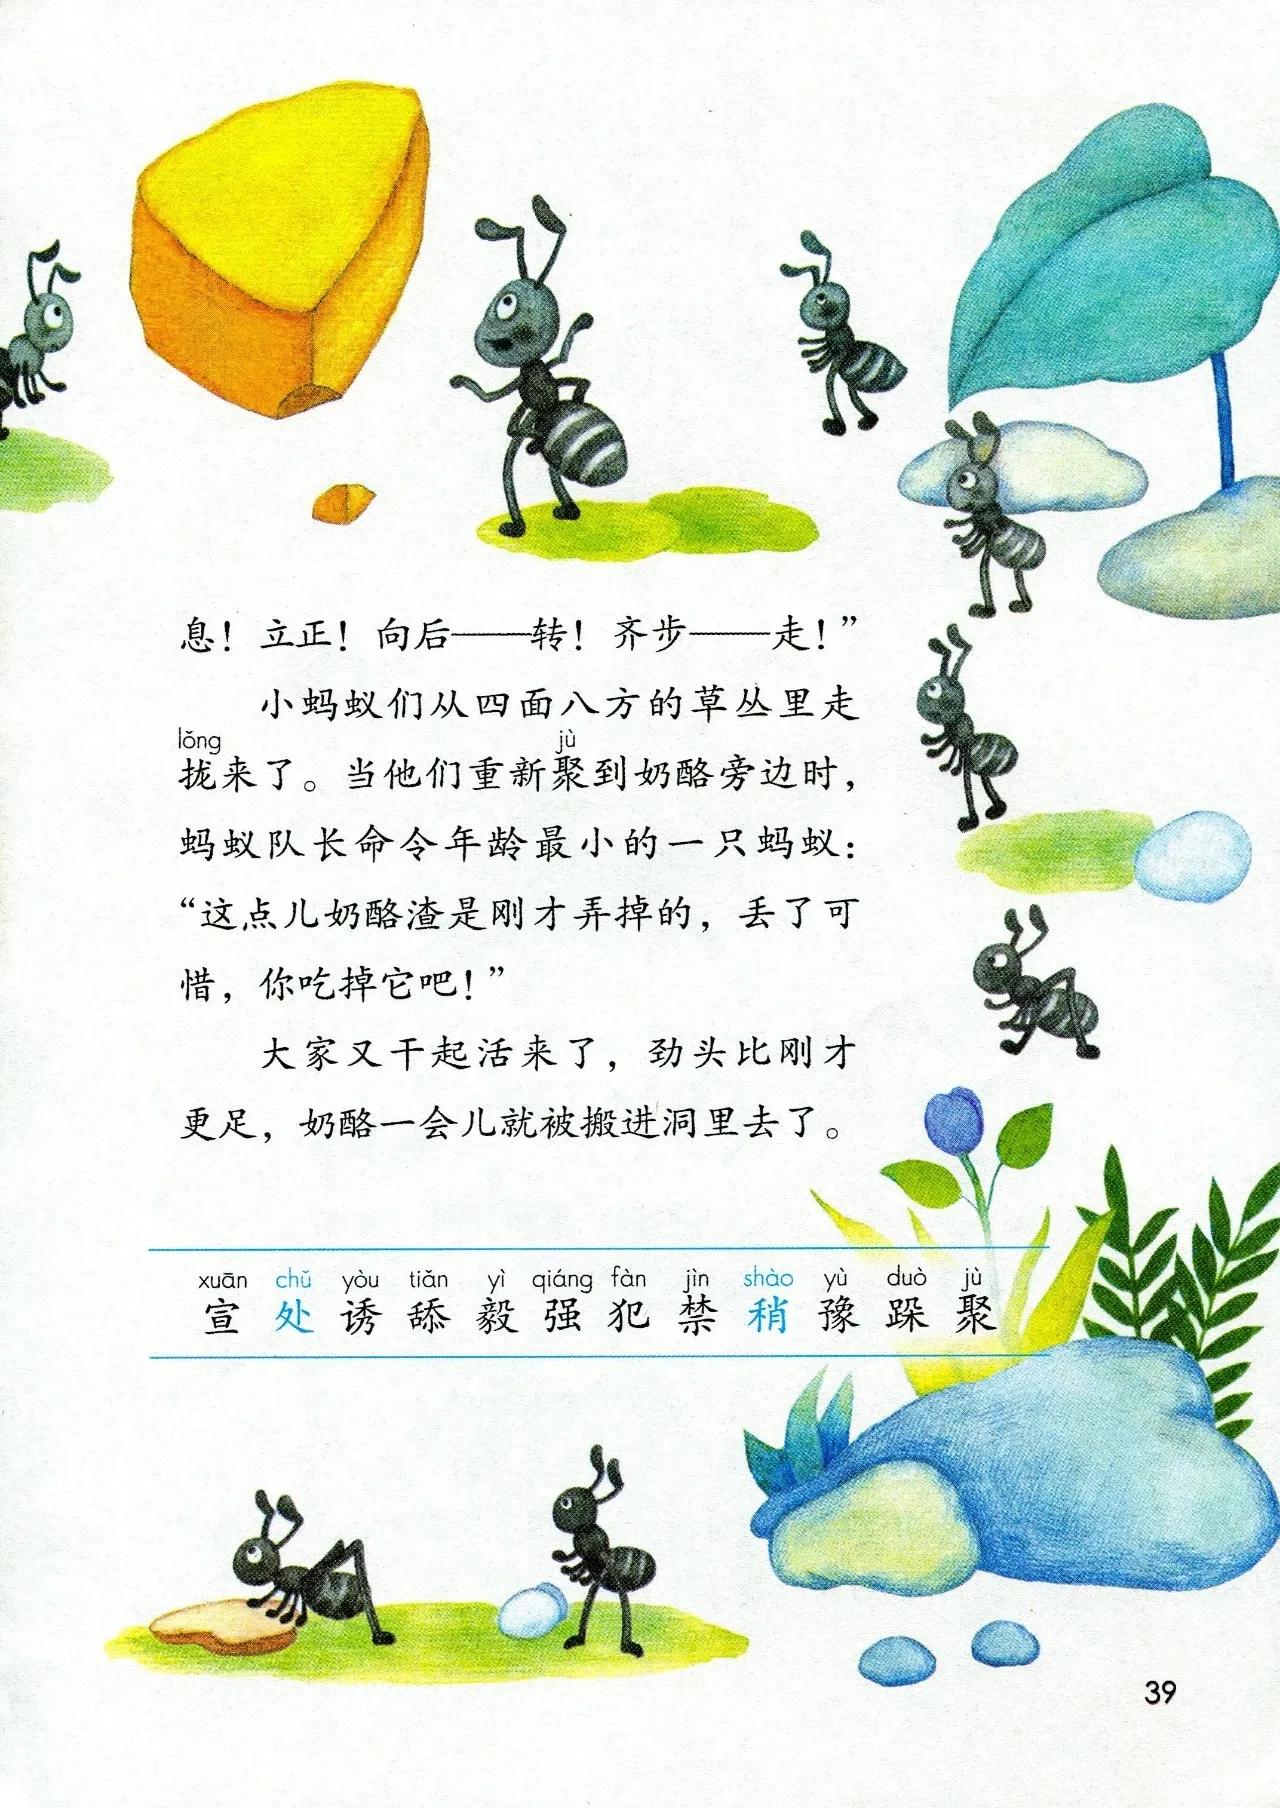 息！立正！向后——转！齐步——走！”
小蚂蚁们从四面八方的草丛里走
lǒng jù
拢来了。当他们重新聚到奶酪旁边时，
蚂蚁队长命令年龄最小的一只蚂蚁：
“这点儿奶酪渣是刚才弄掉的，丢了可
惜，你吃掉它吧！”
大家又干起活来了，劲头比刚才
更足，奶酪一会儿就被搬进洞里去了。
xuān chǔ yòu tiǎn yì qiáng fàn jìn shào yù duò jù
宣 处 诱 舔 毅 强 犯 禁 稍 豫 跺 聚
39